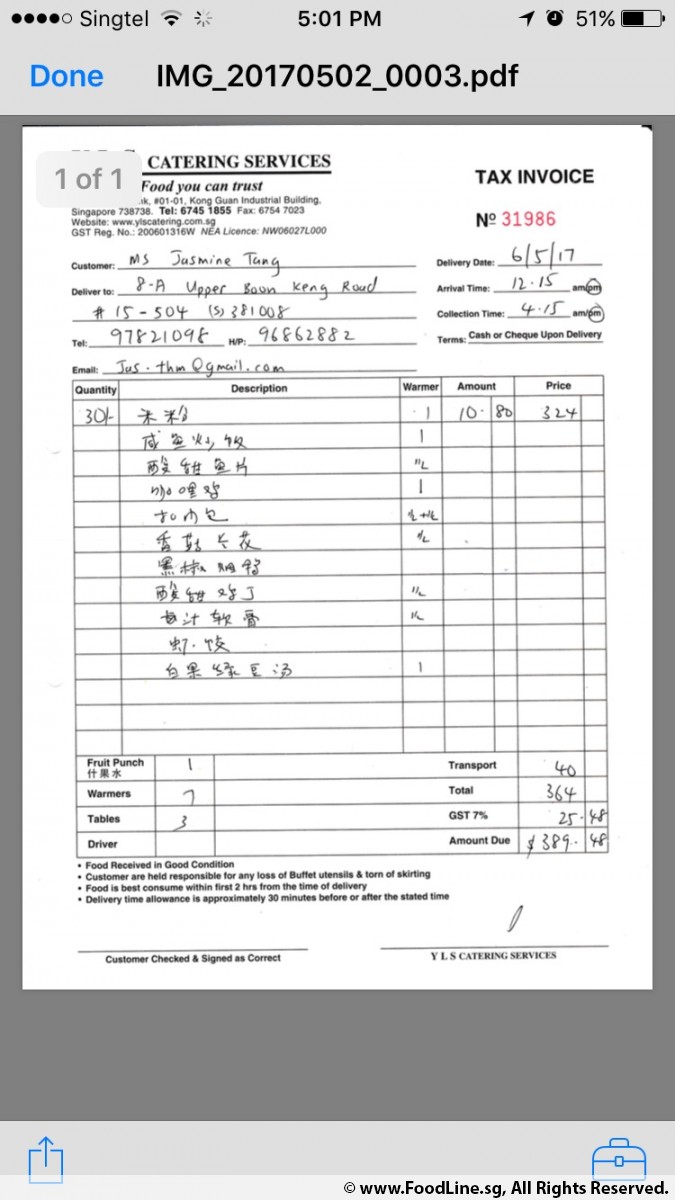 Singtel 5:01 PM 51%
Done IMG_20170502_0003.pdf
1 of 1
CATERING SERVICES
Food you can trust
#01-01, Kong Guan Industrial Building,
Singapore 738738. Tel: 6745 1855 Fax: 6754 7023
Website: www.ylscatering.com.sg
GST Reg. No.: 200601316W NEA Licence: NW06027L000
TAX INVOICE
Nº 31986
Customer: Ms Jasmine Tang
Deliver to: 8-A Upper Boon Keng Road
#15-504 (S) 381008
Tel: 97821098 H/P: 96862882
Email: Jus.thm@gmail.com
Delivery Date: 6/5/17
Arrival Time: 12.15 am/pm
Collection Time: 4.15 am/pm
Terms: Cash or Cheque Upon Delivery
Quantity Description Warmer Amount Price
30/- 米粉 1 10.80 324
咸鱼炒饭 1
酸甜鱼片 ½
咖喱鸡 1
扣肉包 ½+½
香菇 花 ½
黑椒 鸭
酸甜鸡丁 ½
汁 ½
虾饺
白果绿豆汤 1
Fruit Punch 1 Transport 40
什果水
Warmers 7 Total 364
Tables 3 GST 7% 25.48
Driver Amount Due $389.48
• Food Received in Good Condition
• Customer are held responsible for any loss of Buffet utensils & torn of skirting
• Food is best consume within first 2 hrs from the time of delivery
• Delivery time allowance is approximately 30 minutes before or after the stated time
Customer Checked & Signed as Correct Y L S CATERING SERVICES
© www.FoodLine.sg, All Rights Reserved.